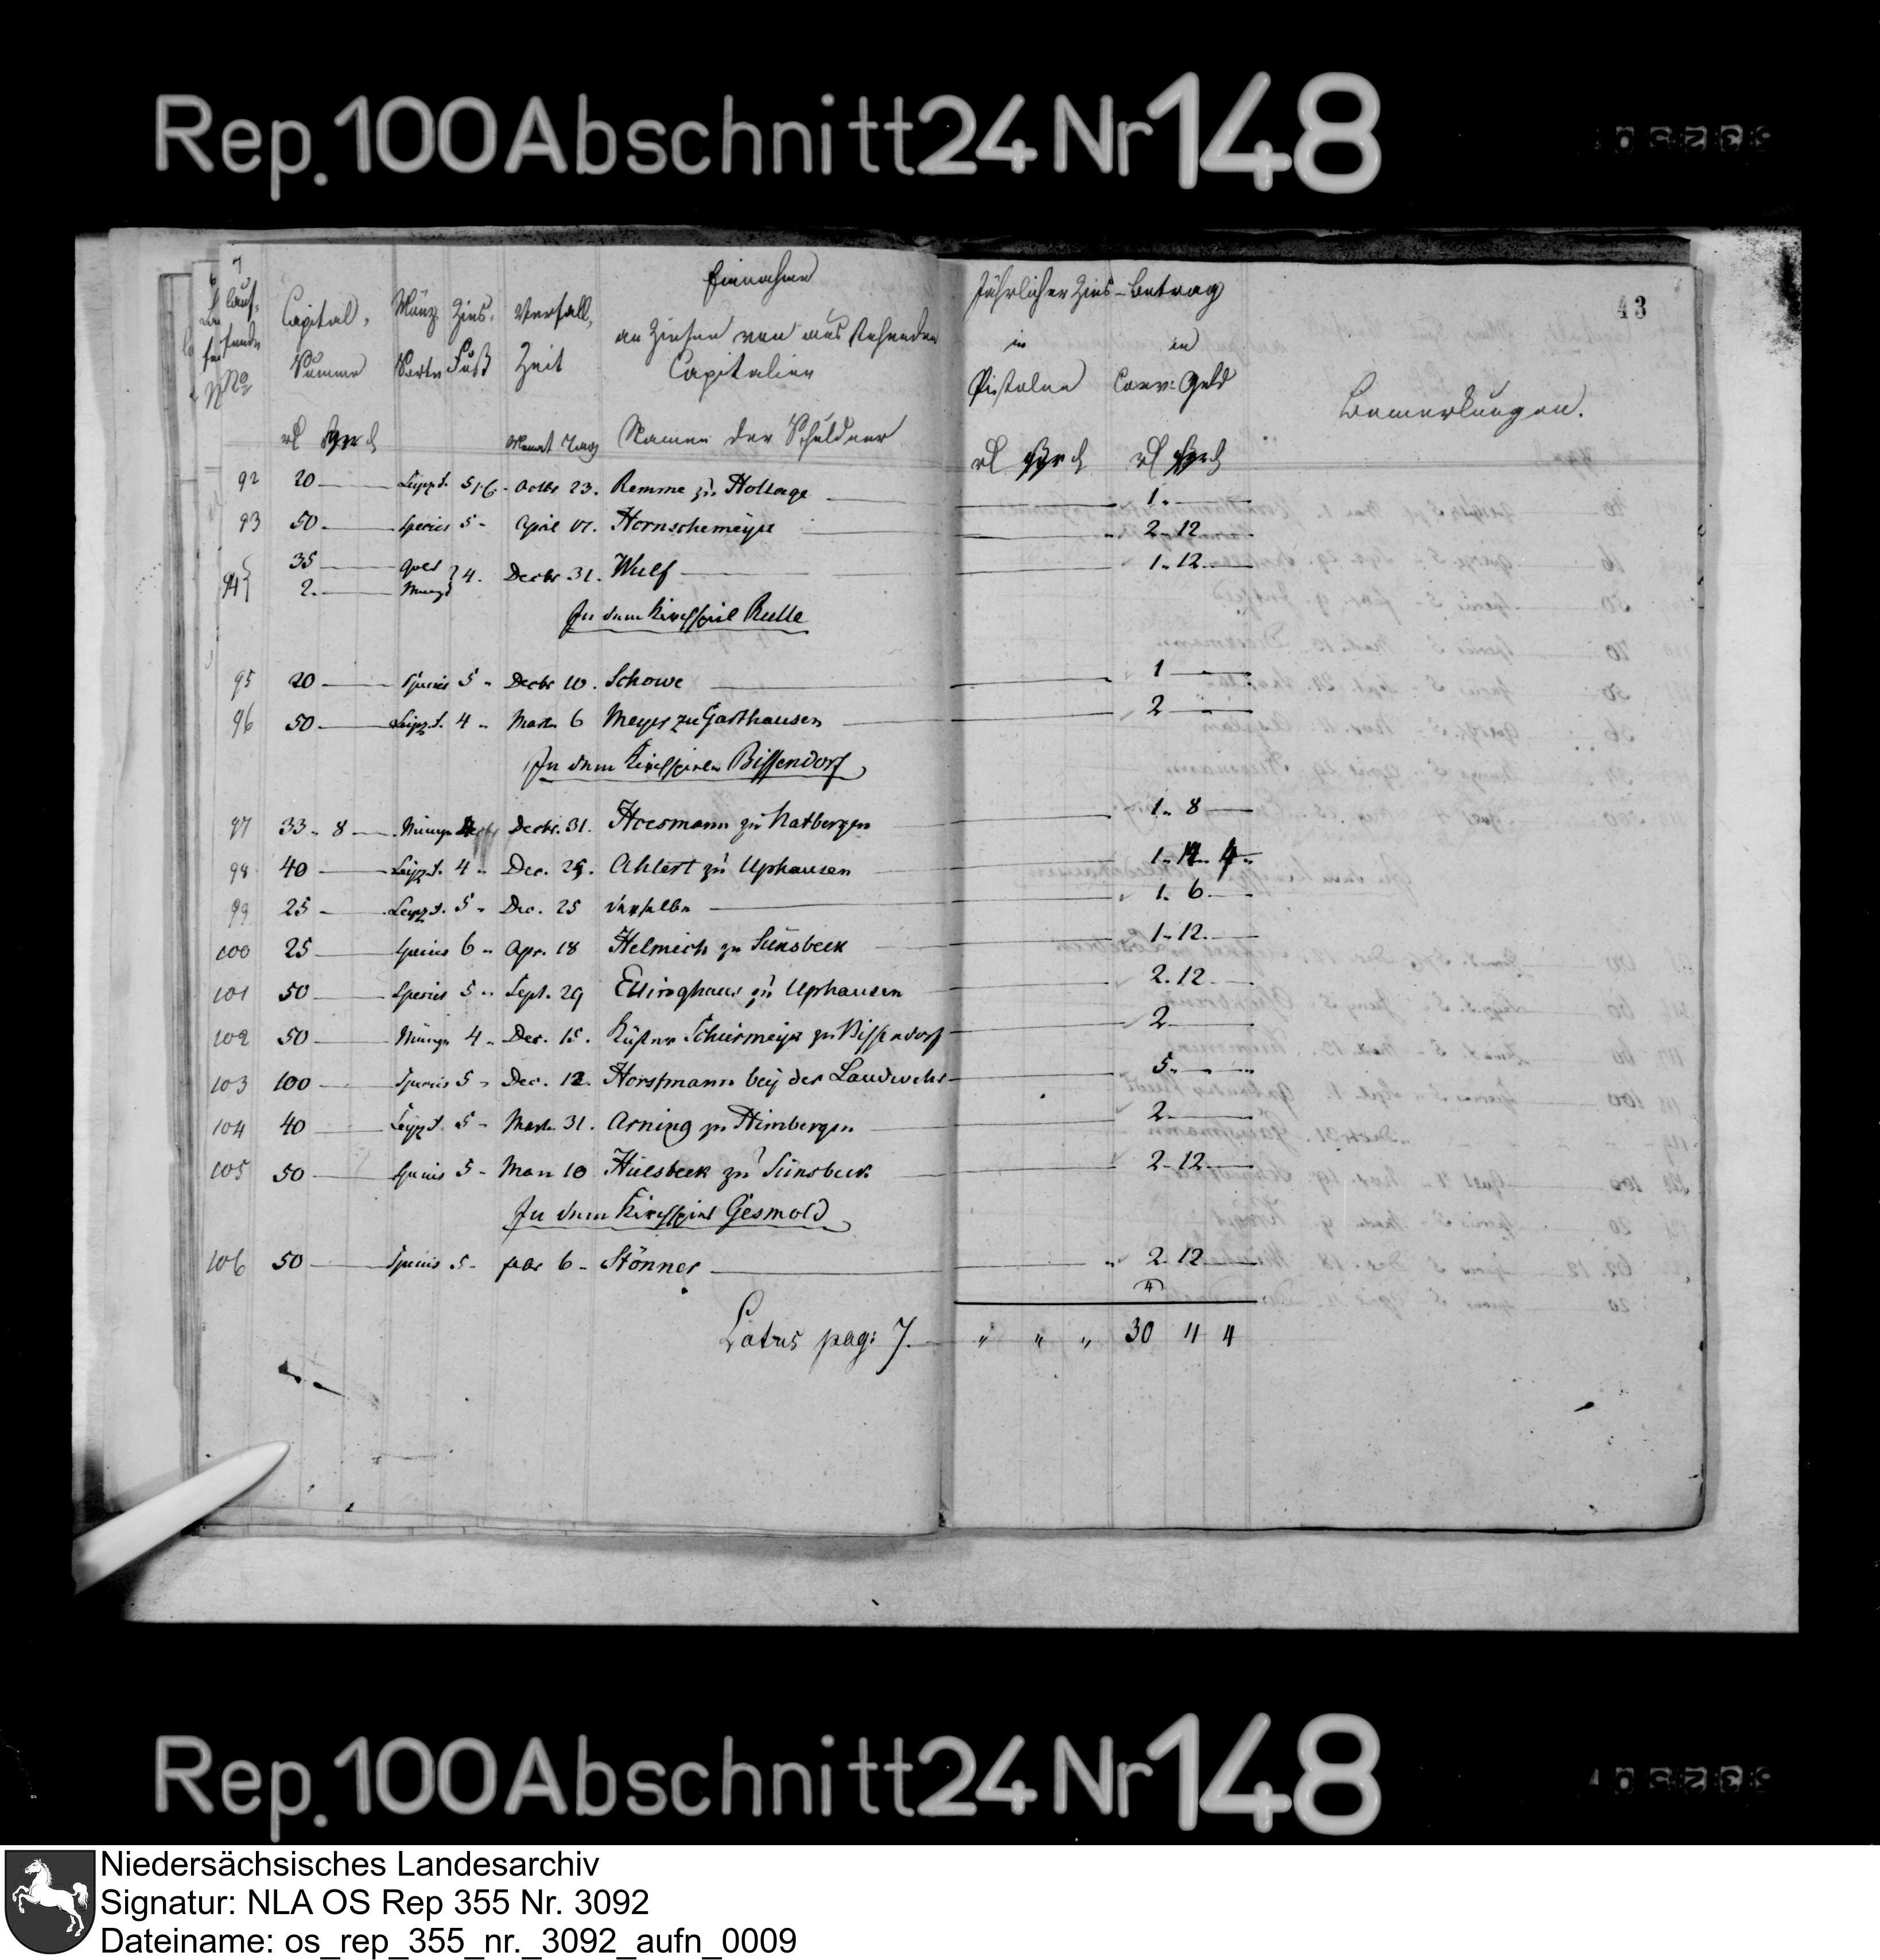 Rep. 100 Abschnitt 24 Nr 148
7
43
Einnahme
an Zinsen von ausstehenden
Capitalien
Namen der Schuldner
laufende No
Capital-Summe
Münz-Sorte
Zins-Fuß
Verfall-Zeit
Monat Tag
Jährlicher Zins-Betrag
in Pistolen
in Conv: Geld
Bemerkungen.
92 20 Leipz. 5 Octbr 23. Remme zu Hollage 1.
93 50 Species 5 April 17. Hornschemeyer 2. 12
94 35 Gold 4. Decbr 31. Wulf 1. 12.
2. Münze
In dem Kirchspiel Rulle
95 20 Species 5 Decbr 10. Schowe 1
96 50 Leipz. 4 Mart. 6 Meyer zu Garthausen 2
In dem Kirchspiele Bissendorf
97 33. 8 Münze Decbr. 31. Hoesmann zu Natbergen 1. 8
98 40 Leipz. 4 Dec. 25. Ahlert zu Uphausen 1. 14. 4
99 25 Leipz. 5 Dec. 25 derselbe 1. 6
100 25 Species 6 Apr. 18 Helmich zu Sünsbeck 1. 12.
101 50 Species 5 Sept. 29 Ellinghaus zu Uphausen 2. 12
102 50 Münze 4 Dec. 15. Küster Schürmeyer zu Bissendorf 2
103 100 Species 5 Dec. 12. Horstmann bey der Landwehr 5
104 40 Leipz. 5 Mart. 31. Arning zu Himbergen 2
105 50 Species 5 10 Hülsbeck zu Sünsbeck 2. 12
In dem Kirchspiel Gesmold
106 50 Species 5 febr 6 Stönner 2. 12
Latus pag: 7. " " " 30 11 4
Rep. 100 Abschnitt 24 Nr 148
Niedersächsisches Landesarchiv
Signatur: NLA OS Rep 355 Nr. 3092
Dateiname: os_rep_355_nr._3092_aufn_0009